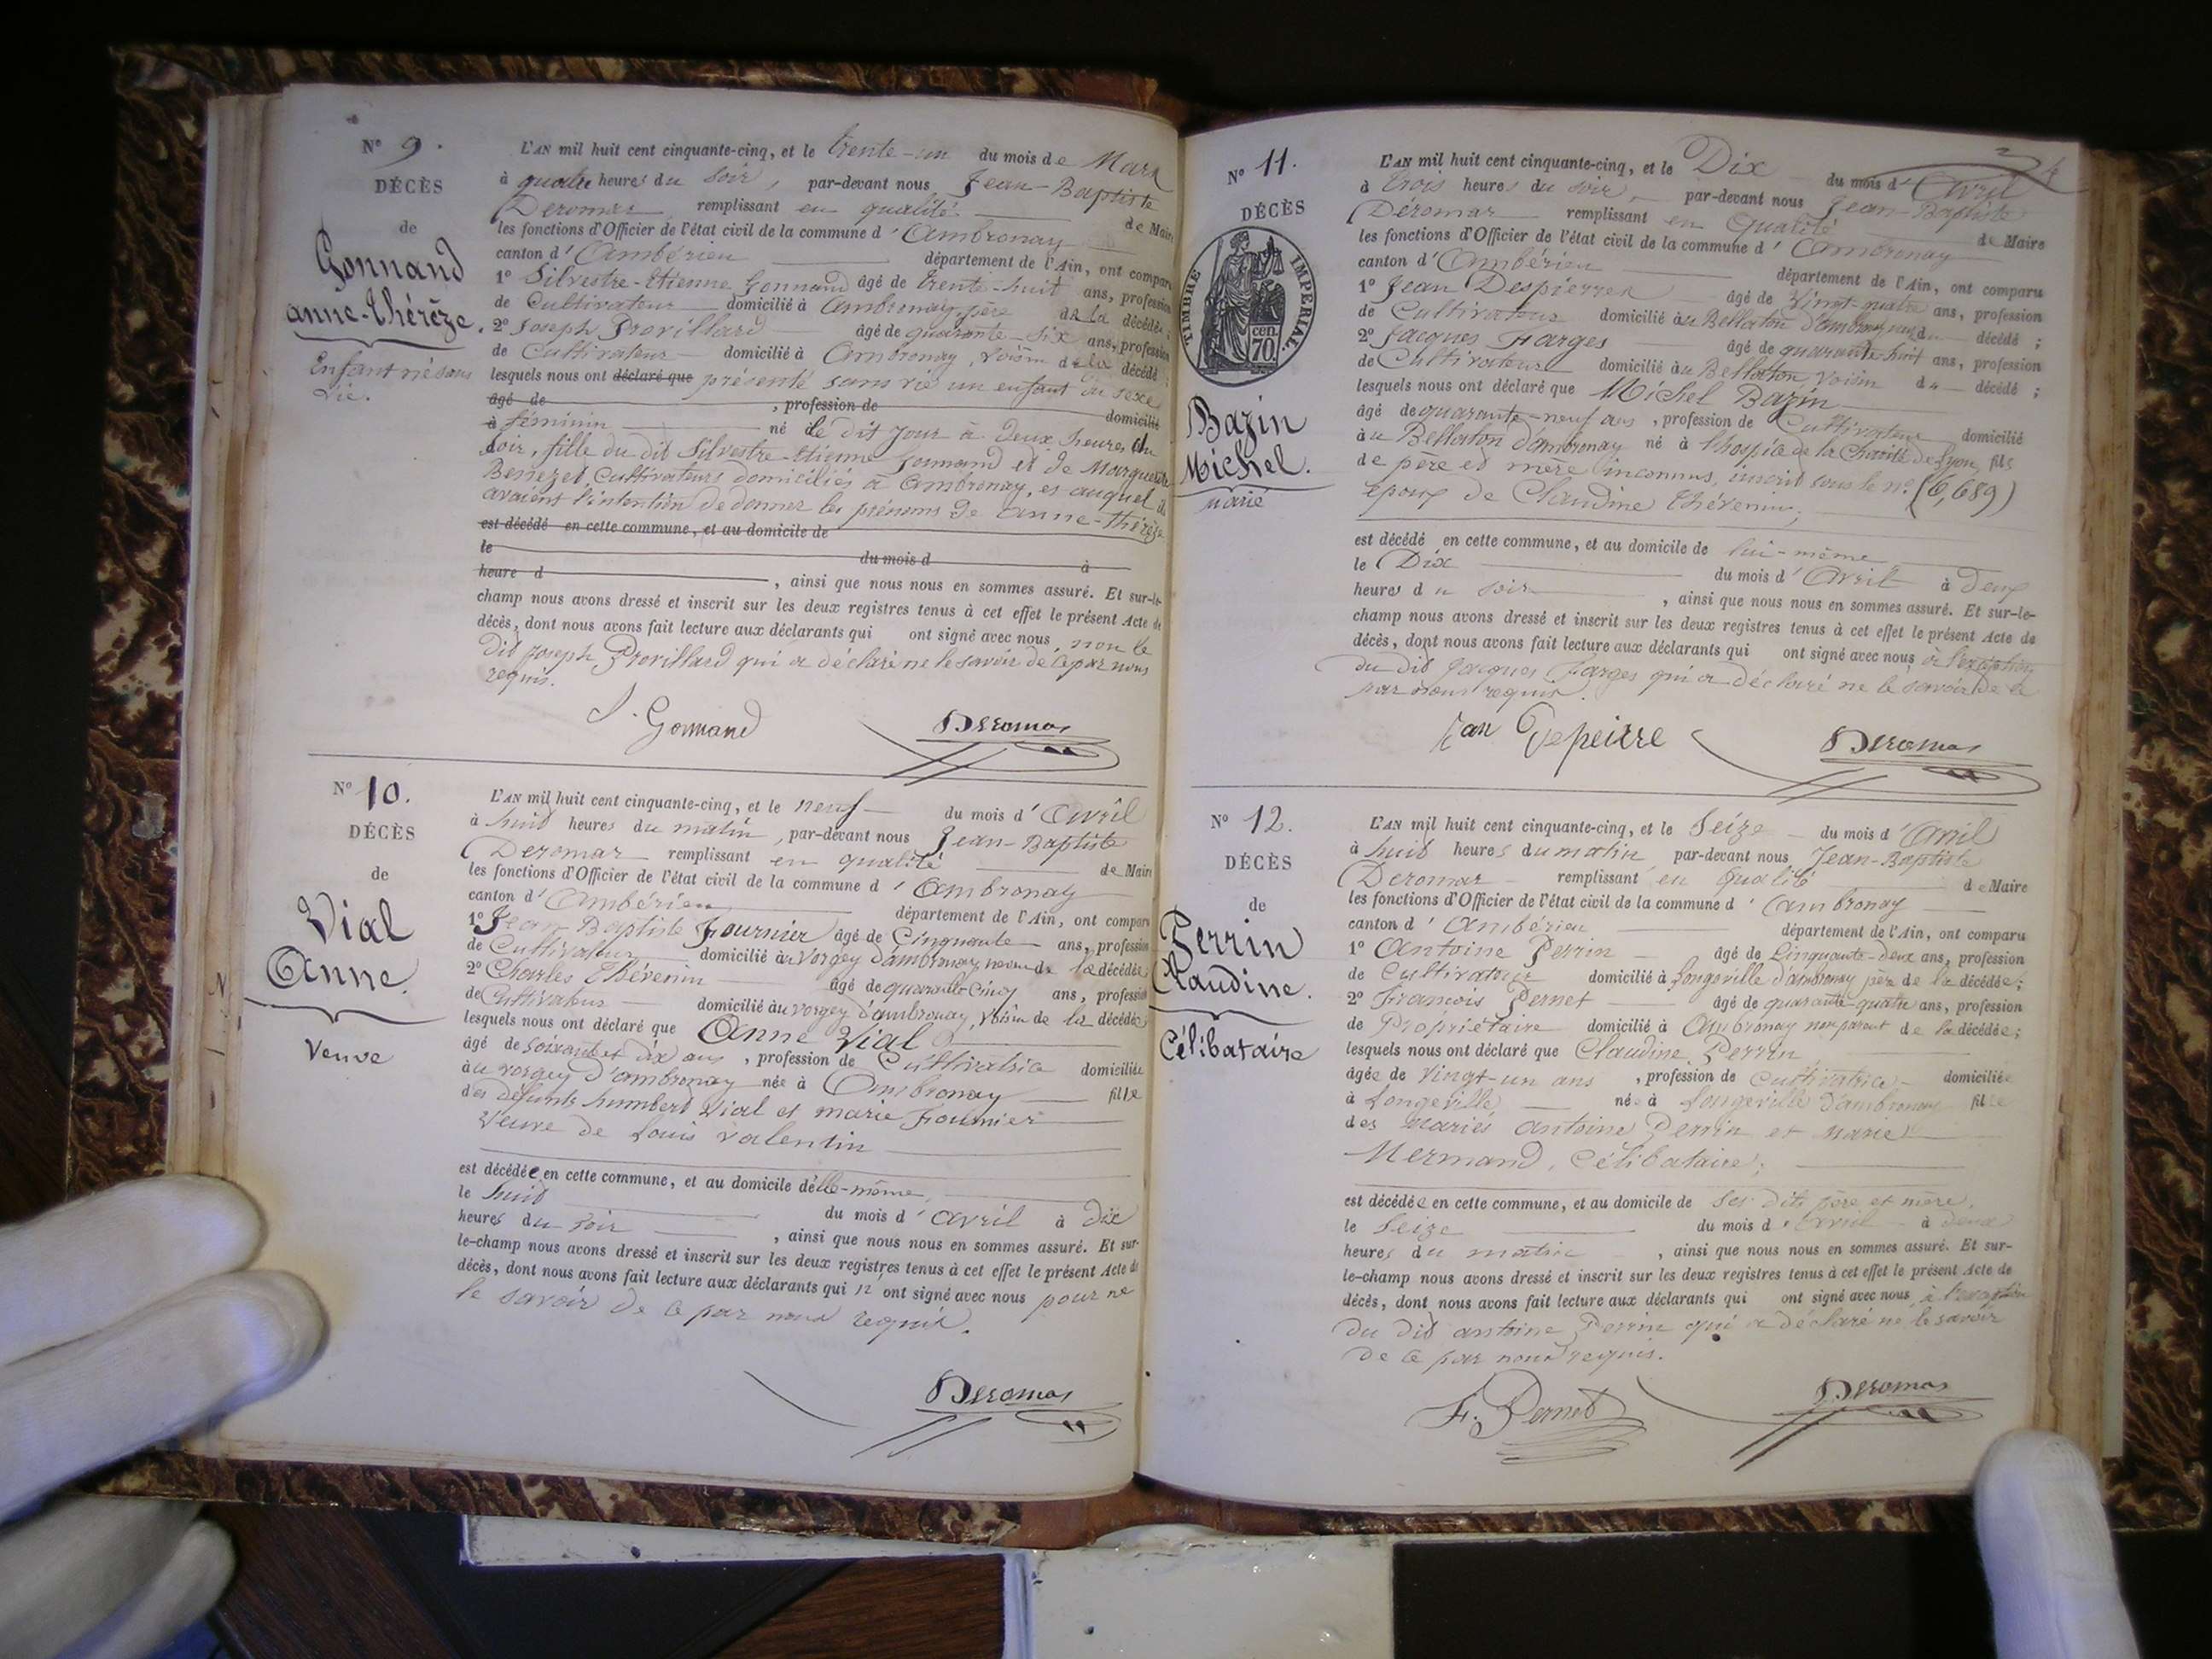 N° 9.
DÉCÈS
de
Gonnand
anne-thérèze.
Enfant né sans
vie.
L'AN mil huit cent cinquante-cinq, et le trente-un du mois de Mars
à quatre heures du soir, par-devant nous, Jean-Baptiste
Deromas remplissant en qualité de Maire
les fonctions d'Officier de l'état civil de la commune d'Ambronay
canton d'Ambérieu département de l'Ain, ont comparu
1° Silvestre-Etienne Gonnand âgé de trente-huit ans, profession
de Cultivateur domicilié à Ambronay, père de la décédée;
2° Joseph Provillard âgé de quarante-six ans, profession
de Cultivateur domicilié à Ambronay, voisin de la décédé;
lesquels nous ont déclaré que présenté sans vie un enfant du sexe
âgé de , profession de domicilié
à féminin né le dit jour à deux heures du
soir, fille du dit Silvestre-Etienne Gonnand et de Marguerite
Benezet, Cultivateurs domiciliés à Ambronay, et auquel ils
avaient l'intention de donner les prénoms de anne-thérèze
est décédé en cette commune, et au domicile de
le du mois d à
heure d , ainsi que nous nous en sommes assuré. Et sur-le-
champ nous avons dressé et inscrit sur les deux registres tenus à cet effet le présent Acte de
décès, dont nous avons fait lecture aux déclarants qui ont signé avec nous, non le
dit Joseph Provillard qui a déclaré ne le savoir de ce par nous
requis.
S. Gonnand Deromas
N° 10.
DÉCÈS
de
Vial
Anne.
Veuve
L'AN mil huit cent cinquante-cinq, et le neuf du mois d'Avril
à huit heures du matin, par-devant nous Jean-Baptiste
Deromas remplissant en qualité de Maire
les fonctions d'Officier de l'état civil de la commune d'Ambronay
canton d'Ambérieu département de l'Ain, ont comparu
1° Jean Baptiste Fournier âgé de Cinquante ans, profession
de Cultivateur domicilié au vorgey d'ambronay, neveu de la décédée
2° Charles Thévenin âgé de quarante-Cinq ans, profession
de Cultivateur domicilié au vorgey d'ambronay, voisin de la décédée
lesquels nous ont déclaré que Anne Vial
âgé de soixante et dix ans, profession de Cultivatrice domiciliée
au vorgey d'ambronay née à Ambronay fille
des défunts humbert Vial et marie Fournier
Veuve de Louis valentin
est décédée en cette commune, et au domicile d'elle-même,
le huit du mois d'avril à dix
heures du soir , ainsi que nous nous en sommes assuré. Et sur-
le-champ nous avons dressé et inscrit sur les deux registres tenus à cet effet le présent Acte de
décès, dont nous avons fait lecture aux déclarants qui n' ont signé avec nous pour ne
le savoir de ce par nous requis.
Deromas
N° 11.
DÉCÈS
TIMBRE IMPERIAL.
cen.
70
Bazin
Michel.
marié
L'AN mil huit cent cinquante-cinq, et le Dix du mois d'Avril
à trois heures du soir, par-devant nous Jean-Baptiste
Déromas remplissant en Qualité de Maire
les fonctions d'Officier de l'état civil de la commune d'Ambronay
canton d'Ambérieu département de l'Ain, ont comparu
1° Jean Despierres âgé de Vingt-quatre ans, profession
de Cultivateur domicilié au Bellaton d'ambronay du décédé;
2° Jacques Farges âgé de quarante huit ans, profession
de Cultivateur domicilié au Bellaton, voisin du décédé;
lesquels nous ont déclaré que Michel Bazin
âgé de quarante-neuf ans, profession de Cultivateur domicilié
au Bellaton d'ambronay né à l'hospice de la Charité de Lyon, fils
de père et mère inconnus, inscrit sous le n°. (6,689)
époux de Claudine Thévenin;
est décédé en cette commune, et au domicile de lui-même
le Dix du mois d'Avril à Deux
heures du soir , ainsi que nous nous en sommes assuré. Et sur-le-
champ nous avons dressé et inscrit sur les deux registres tenus à cet effet le présent Acte de
décès, dont nous avons fait lecture aux déclarants qui ont signé avec nous, à l'exception
du dit Jacques Farges qui a déclaré ne le savoir de ce
par nous requis.
Jan Depeirre Deromas
N° 12.
DÉCÈS
de
Perrin
Claudine.
Célibataire
L'AN mil huit cent cinquante-cinq, et le Seize du mois d'Avril
à huit heures du matin par-devant nous, Jean-Baptiste
Deromas remplissant en Qualité de Maire
les fonctions d'Officier de l'état civil de la commune d'Ambronay
canton d'Ambérieu département de l'Ain, ont comparu
1° Antoine Perrin âgé de Cinquante-deux ans, profession
de Cultivateur domicilié à Longeville d'ambronay père de la décédée;
2° François Pernet âgé de quarante-quatre ans, profession
de Propriétaire domicilié à Ambronay non parent de la décédée;
lesquels nous ont déclaré que Claudine Perrin
âgée de Vingt-un ans, profession de Cultivatrice domiciliée
à Longeville née à Longeville d'ambronay fille
des mariés antoine Perrin et Marie
Mermand, Célibataire;
est décédée en cette commune, et au domicile de ses dits père et mère,
le Seize du mois d'Avril à deux
heures du matin , ainsi que nous nous en sommes assuré. Et sur-
le-champ nous avons dressé et inscrit sur les deux registres tenus à cet effet le présent Acte de
décès, dont nous avons fait lecture aux déclarants qui ont signé avec nous, à l'exception
du dit antoine Perrin qui a déclaré ne le savoir
de ce par nous requis.
F. Pernet Deromas